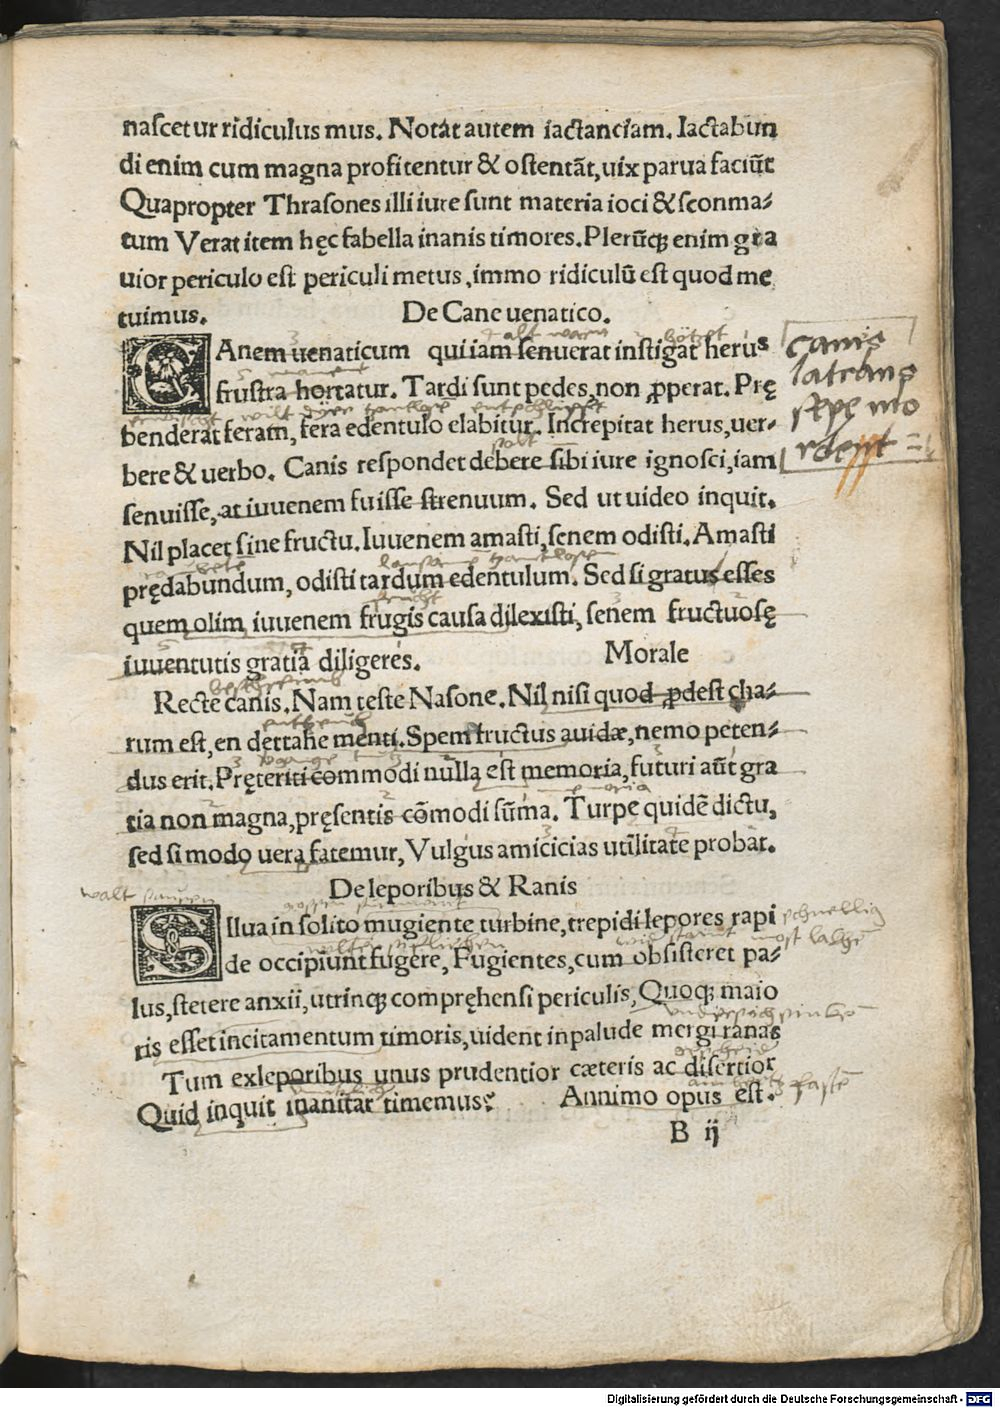 naſcetur ridiculus mus. Notāt autem iactanciam. Iactabun
di enim cum magna profitentur & oſtentāt, uix parua faciūt
Quapropter Thraſones illi iure ſunt materia ioci & ſconma-
tum Vetat item hęc fabella inanis timores. Plerūqꝫ enim gra
uior periculo eſt periculi metus, immo ridiculū eſt quod me
tuimus. De Cane uenatico.
CAnem uenaticum qui iam ſenuerat inſtigat herus
fruſtra hortatur. Tardi ſunt pedes, non ꝓperat. Prę
benderat feram, fera edentulo elabitur. Increpitat herus, uer-
bere & uerbo. Canis reſpondet debere ſibi iure ignoſci, iam
ſenuiſſe, at iuuenem fuiſſe ſtrenuum. Sed ut uideo inquit.
Nil placet ſine fructu. Iuuenem amaſti, ſenem odiſti. Amaſti
prędabundum, odiſti tardum edentulum. Sed ſi gratus eſſes
quem olim iuuenem frugis cauſa dilexiſti, ſenem fructuoſę
iuuentutis gratia diligeres. Morale
Recte canis. Nam teſte Naſone. Nil niſi quod ꝓdeſt cha-
rum eſt, en detrahe menti. Spem fructus auidæ, nemo peten-
dus erit. Pręteriti commodi nulla eſt memoria, futuri aūt gra
tia non magna, pręſentis cōmodi ſūma. Turpe quidē dictu,
ſed ſi modo uera fatemur, Vulgus amicicias utilitate probat.
De leporibus & Ranis
SIlua in ſolito mugiente turbine, trepidi lepores rapi
de occipiunt fugere, Fugientes, cum obſiſteret pa-
lus, ſtetere anxii, utrinqꝫ compręhenſi periculis, Quoqꝫ maio
ris eſſet incitamentum timoris, uident in palude mergi ranas
Tum exleporibus unus prudentior cæteris ac diſertior
Quid inquit inanitar timemus? Annimo opus eſt.
B ij
canis
latrans
ſępę mo
rdent
Digitalisierung gefördert durch die Deutsche Forschungsgemeinschaft - DFG